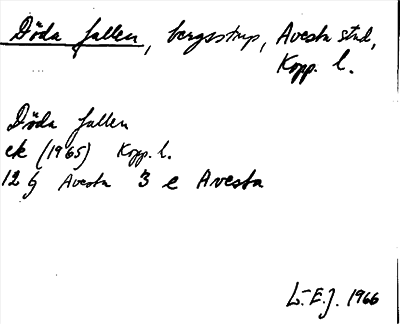 Döda fallen, bergsstup, Avesta stad,
Kopp. l.
Döda fallen
ek (1965) Kopp. l.
12 g Avesta 3 e Avesta
L.-E.J. 1966